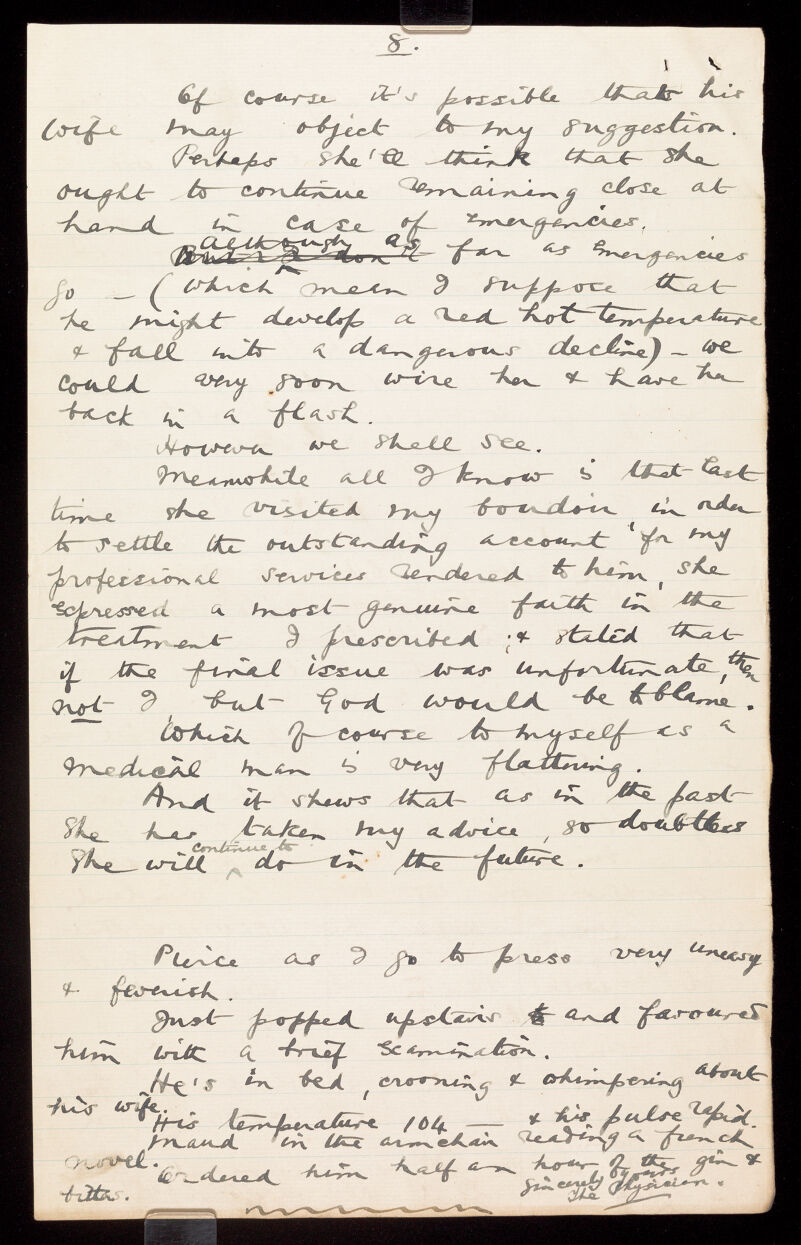 8.
Of course it's possible that his
wife may object to my suggestion.
Perhaps she'll think that she
ought to continue remaining close at
hand in case of emergencies.
although as
But I don't far as emergencies
go — (which mean I suppose that
he might develop a red hot temperature
& fall into a dangerous decline) — we
could very soon wire her & have her
back in a flash.
However we shall see.
Meanwhile all I know is that last
time she visited my boudoir in order
to settle the outstanding account for my
professional services rendered to him, she
expressed a most genuine faith in the
treatment I prescribed ; & stated that
if the final issue was unfortunate, then
not I but God would be to blame.
Which of course to myself as a
medical man is very flattering.
And it shews that as in the past
she has taken my advice, so doubtless
continue to
she will do in the future.
Pierce as I go to press very uneasy
& feverish.
Just popped upstairs and favoured
him with a brief examination.
He's in bed, crooning & whimpering about
his wife.
His temperature 104 — & his pulse rapid.
Maud in the armchair reading a french
novel.
Ordered him half an hour of the gin &
bitters.
Sincerely yours
The Physician.